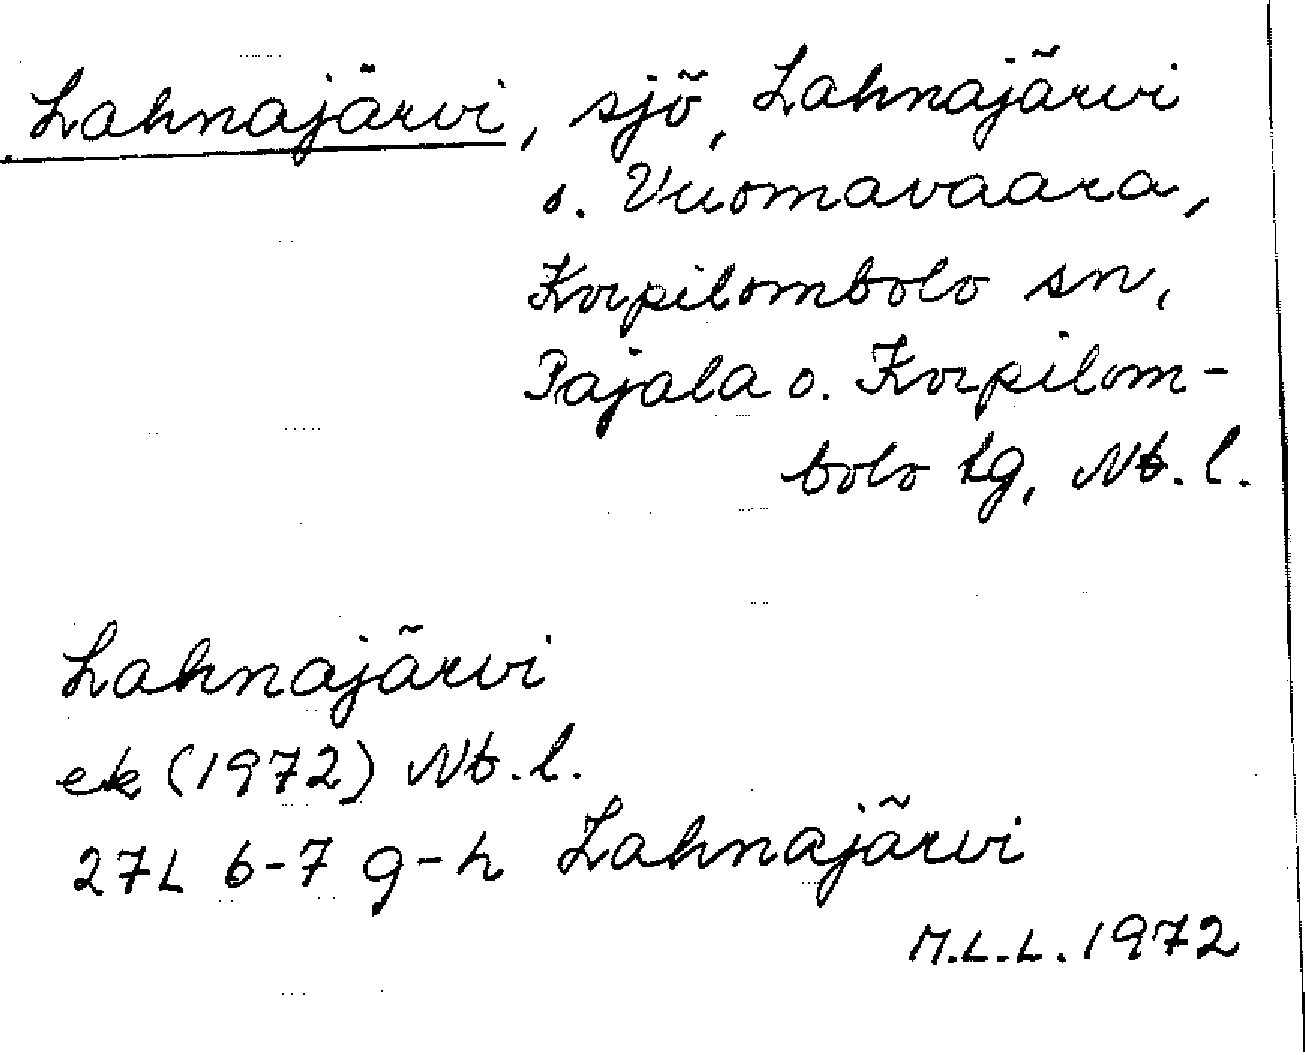 Lahnajärvi, sjö, Lahnajärvi
o. Vuomavaara,
Korpilombolo sn,
Pajala o. Korpilom-
bolo tg, Nb. l.
Lahnajärvi
ek (1972) Nb. l.
27L 6-7 g-h Lahnajärvi
M.L.L. 1972